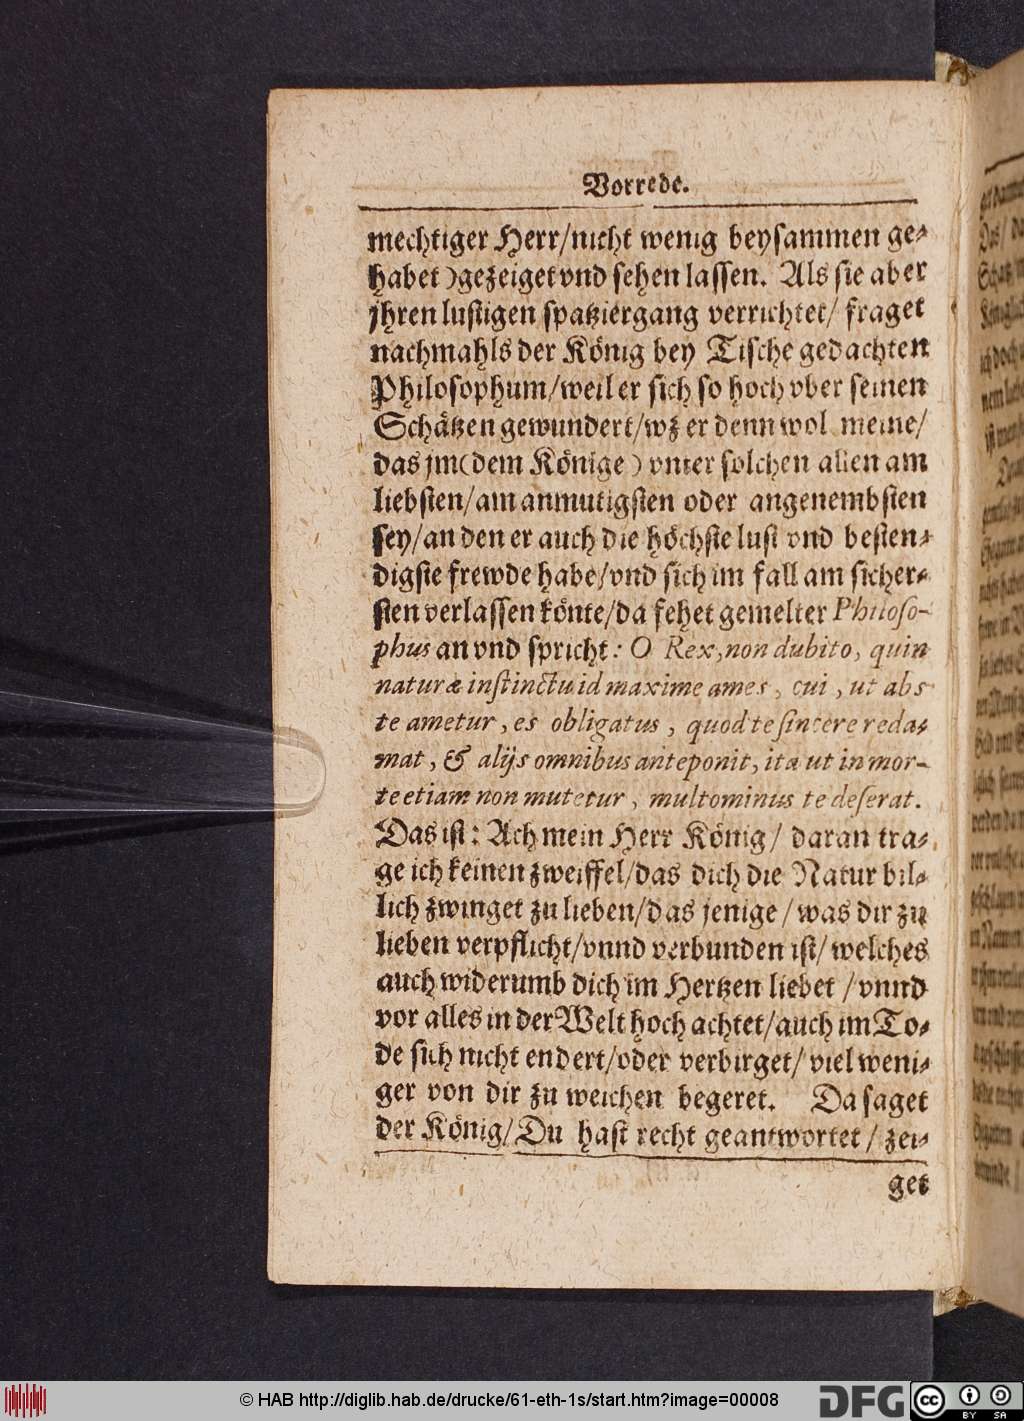 Vorrede.
mechtiger Herr/nicht wenig beysammen ge-
habet )gezeiget vnd sehen lassen. Als sie aber
jhren lustigen spatziergang verrichtet/ fraget
nachmahls der König bey Tische gedachten
Philosophum/weil er sich so hoch vber seinen
Schätzen gewundert/wz er denn wol meine/
das jm(dem Könige) vnter solchen allen am
liebsten/am anmutigsten oder angenembsten
sey/an den er auch die höchste lust vnd besten-
digste frewde habe/vnd sich im fall am sicher-
sten verlassen könte/da fehet gemelter Philoso-
phus an vnd spricht: O Rex, non dubito, quin
naturæ instinctu id maxime ames, cui, ut abs
te ametur, es obligatus, quod te sincere reda-
mat, & alijs omnibus anteponit, ita ut in mor-
te etiam non mutetur, multominus te deserat.
Das ist: Ach mein Herr König/ daran tra-
ge ich keinen zweiffel/das dich die Natur bil-
lich zwinget zu lieben/das jenige/was dir zu
lieben verpflicht/vnnd verbunden ist/welches
auch widerumb dich im Hertzen liebet /vnnd
vor alles in der Welt hoch achtet/auch im To-
de sich nicht endert/oder verbirget/ viel weni-
ger von dir zu weichen begeret. Da saget
der König/Du hast recht geantwortet/ zei-
get
© HAB http://diglib.hab.de/drucke/61-eth-1s/start.htm?image=00008
DFG
cc
BY SA